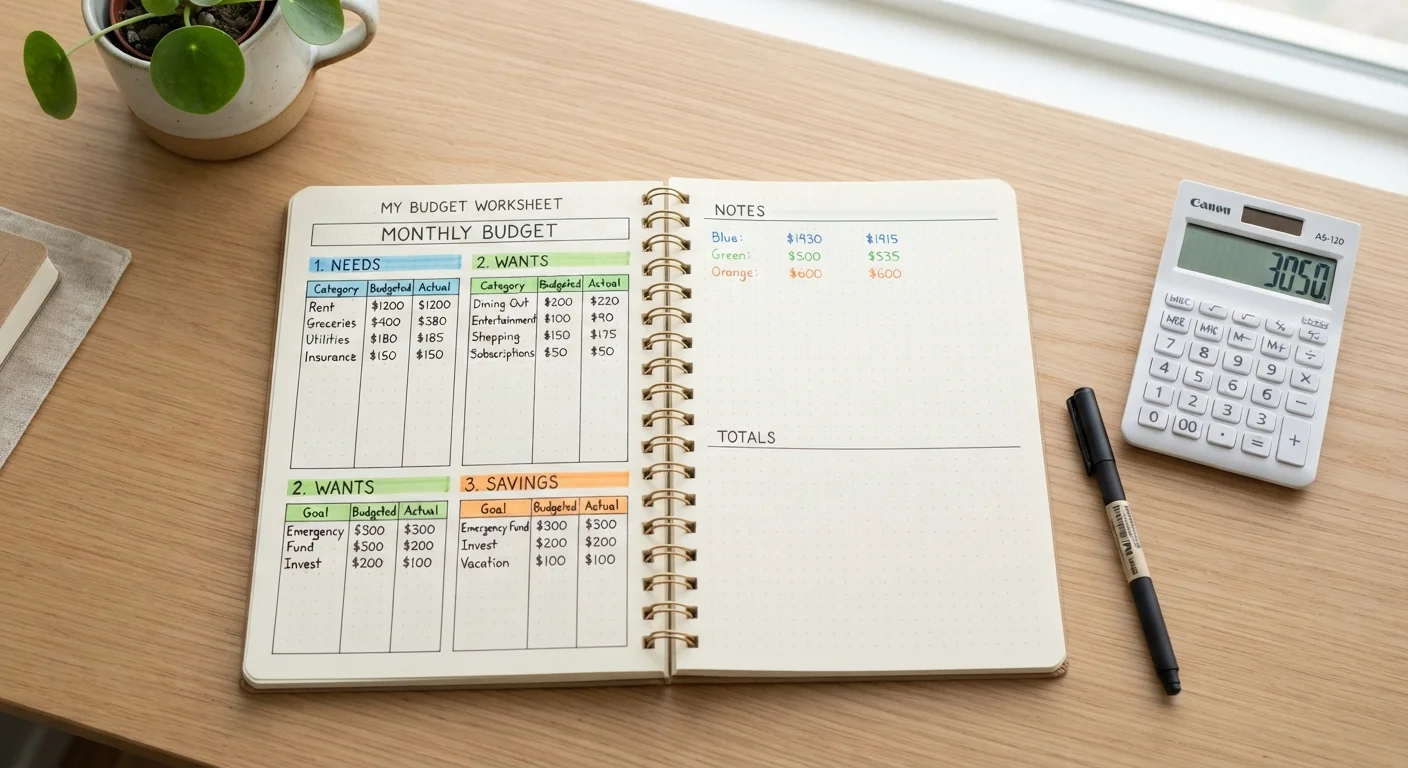 MY BUDGET WORKSHEET
MONTHLY BUDGET
1. NEEDS
Category Budgeted Actual
Rent $1200 $1200
Groceries $400 $380
Utilities $180 $185
Insurance $150 $150
2. WANTS
Category Budgeted Actual
Dining Out $200 $220
Entertainment $100 $90
Shepping $150 $175
Sobscriptions $50 $50
2. WANTS
Goal Budgeted Actual
Emergency $300 $300
Fund $500 $200
Invest $200 $100
3. SAVINGS
Goal Budgeted Actual
Emergency Fund $300 $500
Invest $200 $200
Vacation $100 $100
NOTES
Blue: $1930 $1915
Green: $500 $535
Orange: $600 $600
TOTALS
Canon
AS-120
3050.
7 8 9 9 ÷
4 5 6 6 ×
1 2 3 3 −
0 00 . = +